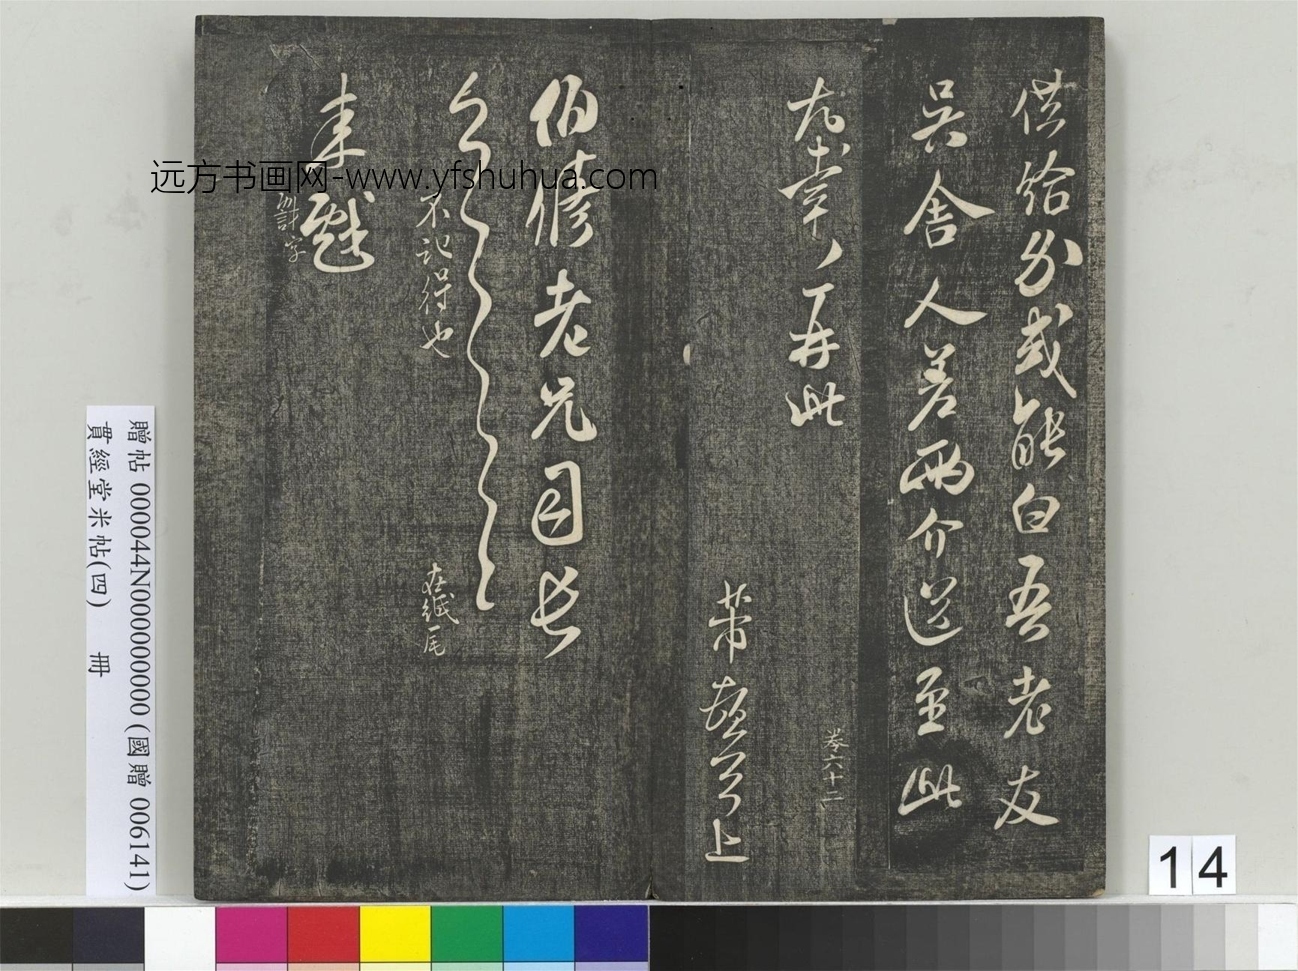 供給分或能白吾老友
吳舍人差兩介送至此
尤幸〃再此
卷六十二
芾頓首上
伯修老兄司長
不記得也
在紙尾
来戲
謝字
远方书画网-www.yfshuhua.com
贈帖 000044N000000000 (國贈 006141)
貫經堂米帖(四) 冊
14